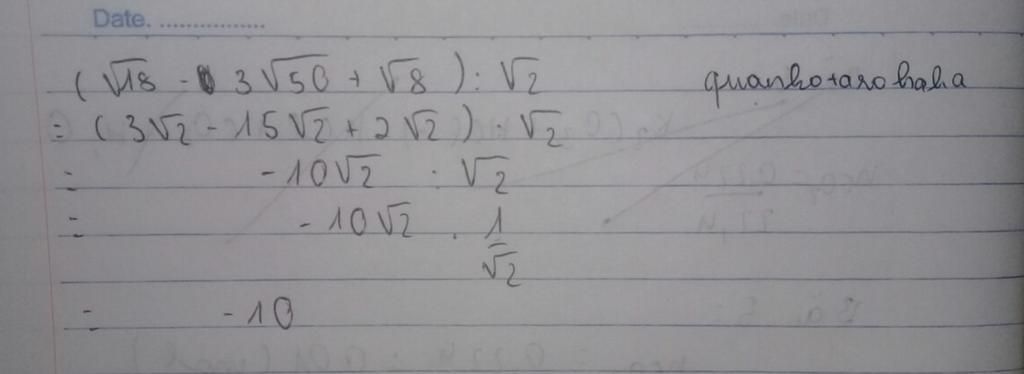 Date. ................
(√18 - 3√50 + √8) : √2 quanho+arohaha
= (3√2 - 15√2 + 2√2) : √2
= -10√2 : √2
= -10√2 . 1/√2
= -10